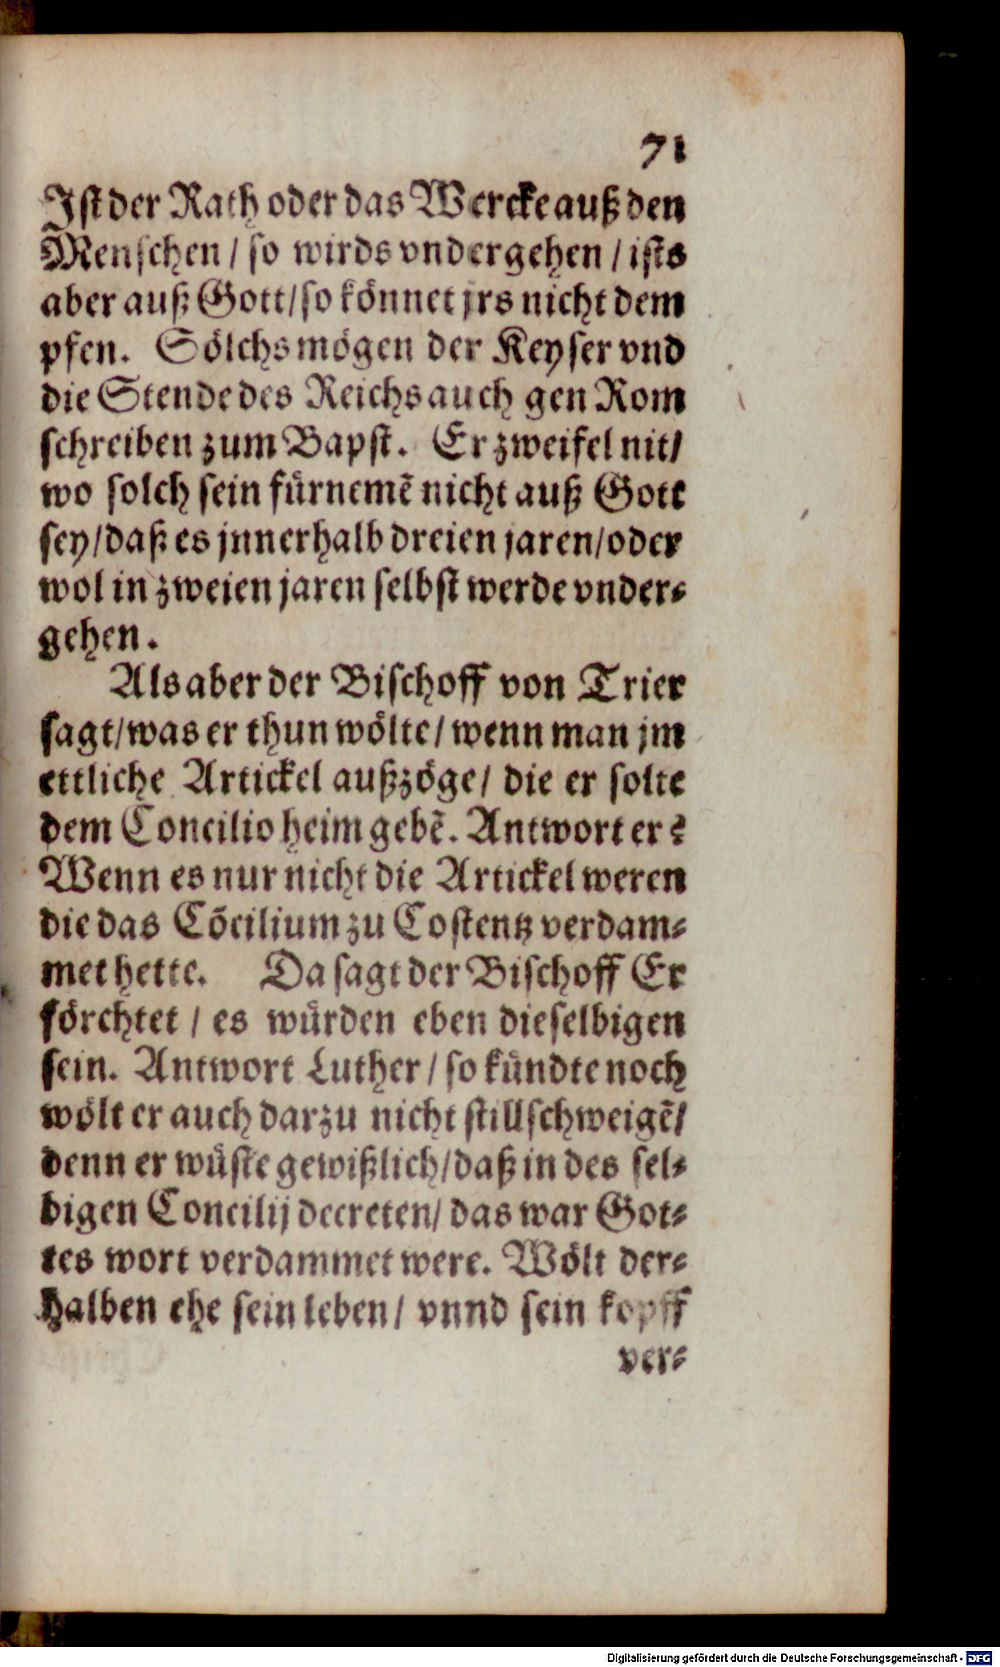 71
Ist der Rath oder das Wercke auß den
Menschen / so wirds vndergehen / ists
aber auß Gott / so könnet jrs nicht dem
pfen. Sölchs mögen der Keyser vnd
die Stende des Reichs auch gen Rom
schreiben zum Bapst. Er zweifel nit /
wo solch sein fürnemẽ nicht auß Gott
sey / daß es jnnerhalb dreien jaren / oder
wol in zweien jaren selbst werde vnder⸗
gehen.
Als aber der Bischoff von Trier
sagt / was er thun wölte / wenn man jm
ettliche Artickel außzöge / die er solte
dem Concilio heim gebẽ. Antwort er:
Wenn es nur nicht die Artickel weren
die das Cõcilium zu Costentz verdam⸗
met hette. Da sagt der Bischoff Er
förchtet / es würden eben dieselbigen
sein. Antwort Luther / so kündte noch
wölt er auch darzu nicht stillschweigẽ /
denn er wüste gewißlich / daß in des sel⸗
bigen Concilij decreten / das war Got⸗
tes wort verdammet were. Wölt der⸗
halben ehe sein leben / vnnd sein kopff
ver⸗
Digitalisierung gefördert durch die Deutsche Forschungsgemeinschaft - DFG